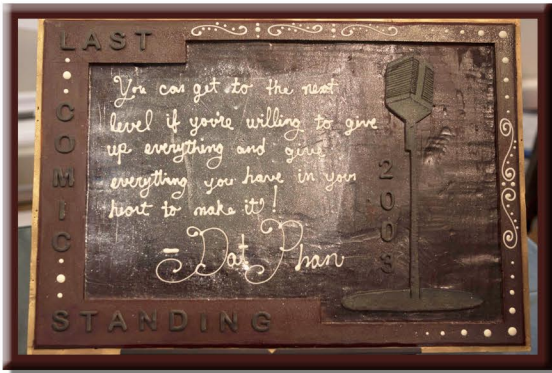 LAST
COMIC
STANDING
You can get to the next
level if you're willing to give
up everything and give
everything you have in your
heart to make it!
- Dat Phan
2003